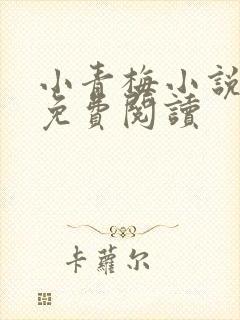 小青梅小說
免費閱讀
卡蘿尔